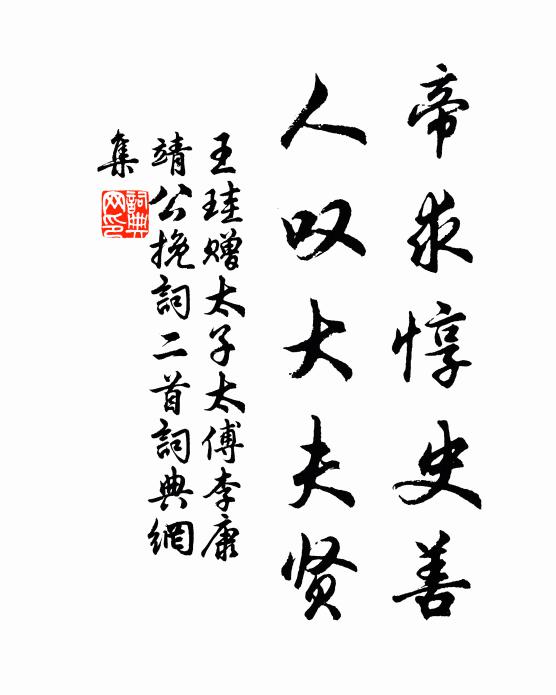 帝求惇史善
人叹大夫贤
王珪赠太子太傅李康
靖公挽詞二首詞典網
集
詞典
网印